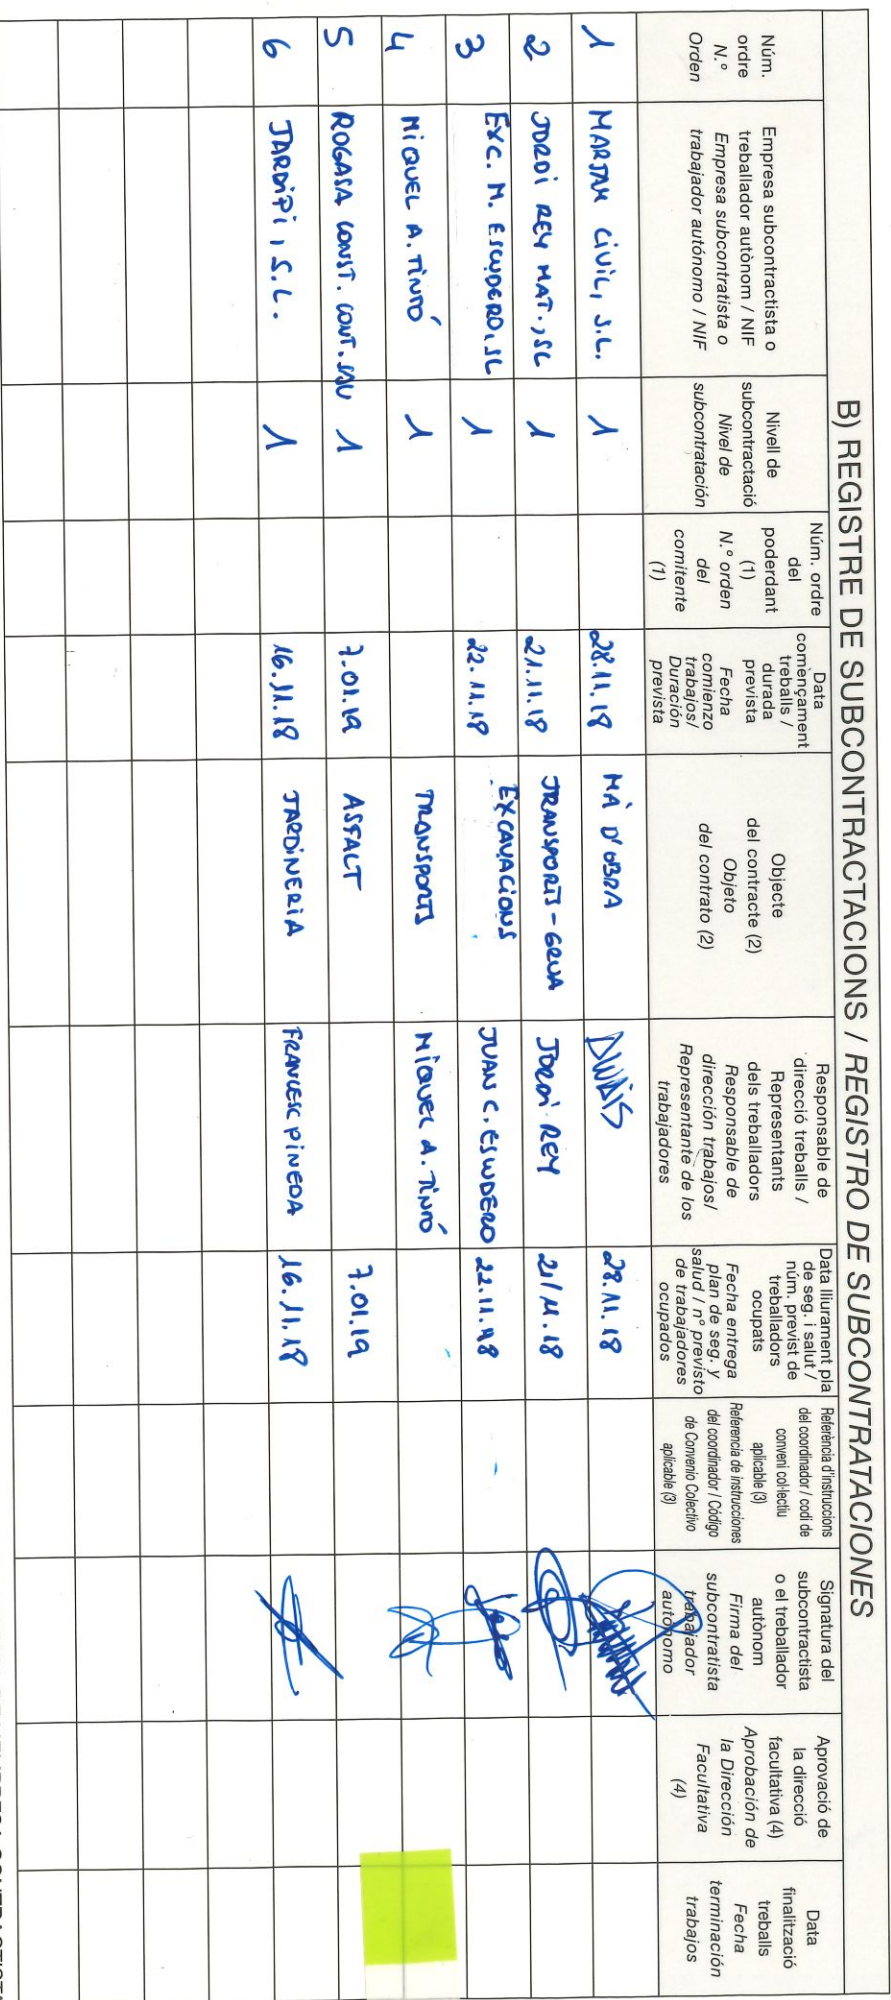 B) REGISTRE DE SUBCONTRACTACIONS / REGISTRO DE SUBCONTRATACIONES
Núm.
ordre
N.º
Orden
Empresa subcontractista o
treballador autònom / NIF
Empresa subcontratista o
trabajador autónomo / NIF
Nivell de
subcontractació
Nivel de
subcontratación
Núm. ordre
del
poderdant
(1)
N.º orden
del
comitente
(1)
Data
començament
treballs /
durada
prevista
Fecha
comienzo
trabajos/
Duración
prevista
Objecte
del contracte (2)
Objeto
del contrato (2)
Responsable de
direcció treballs /
Representants
dels treballadors
Responsable de
dirección trabajos/
Representante de los
trabajadores
Data lliurament pla
de seg. i salut /
núm. previst de
treballadors
ocupats
Fecha entrega
plan de seg. y
salud / nº previsto
de trabajadores
ocupados
Referència d'instruccions
del coordinador / codi de
conveni col·lectiu
aplicable (3)
Referencia de instrucciones
del coordinador / Código
de Convenio Colectivo
aplicable (3)
Signatura del
subcontractista
o el treballador
autònom
Firma del
subcontratista
trabajador
autónomo
Aprovació de
la direcció
facultativa (4)
Aprobación de
la Dirección
Facultativa
(4)
Data
finalització
treballs
Fecha
terminación
trabajos
1 MARJAM CIVIL, S.L. 1 28.11.18 MÀ D'OBRA 28.11.18
2 JORDI REY MAT., SL 1 21.11.18 TRANSPORTS - GRUA JORDI REY 21/11.18
3 EXC. M. ESCUDERO, SL 1 22.11.18 EXCAVACIONS JUAN C. ESCUDERO 22.11.18
4 MIQUEL A. TINTÓ 1 TRANSPORTS MIQUEL A. TINTÓ
5 ROGASA CONST. CONT. SAU 1 7.01.19 ASFALT 7.01.19
6 JARDIPI, S.L. 1 16.11.18 JARDINERIA FRANCESC PINEDA 16.11.18